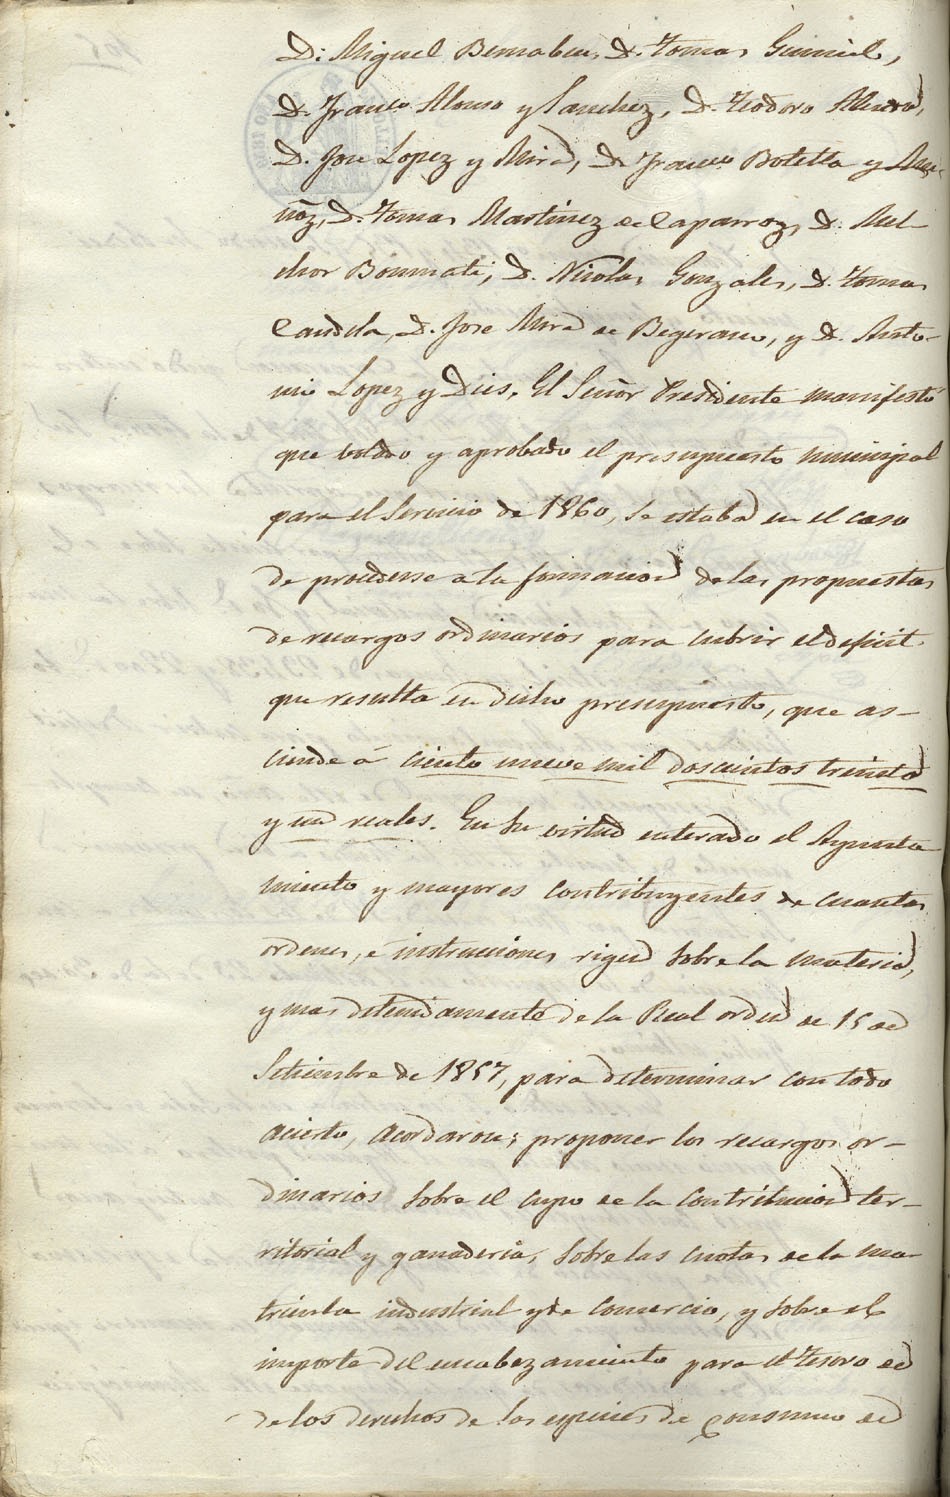 D. Miguel Bernabeu, D. Tomas Gumiel,
D. Franco Alonso y Sanchez, D. Teodoro Alenda,
D. Jose Lopez y Mira, D. Franco Botella y
D. Tomas Martinez de Caparroz, D. Mel-
chor Bonmati, D. Nicolas Gonzales, D. Tomas
Candela, D. Jose Mira de Begerano, y D. Anto-
nio Lopez y Dies. El Señor Presidente manifestó
que votado y aprobado el presupuesto municipal
para el Servicio de 1860, se estaba en el caso
de procederse a la formacion de las propuestas
de recargos ordinarios para cubrir el deficit
que resulta en dicho presupuesto, que as-
ciende á ciento nueve mil doscientos treinta
y un reales. En su virtud enterado el Ayunta
miento y mayores contribuyentes de cuantas
ordenes, é instrucciones rigen sobre la materia,
y mas detenidamente de la Real orden de 15 de
Setiembre de 1857, para determinar con todo
acierto, acordaron; proponer los recargos or-
dinarios sobre el cupo de la contribucion ter-
ritorial y ganaderia, sobre las cuotas de la ma-
tricula industrial y de comercio, y sobre el
importe del encabezamiento para el tesoro de
de los derechos de las especies de consumo de